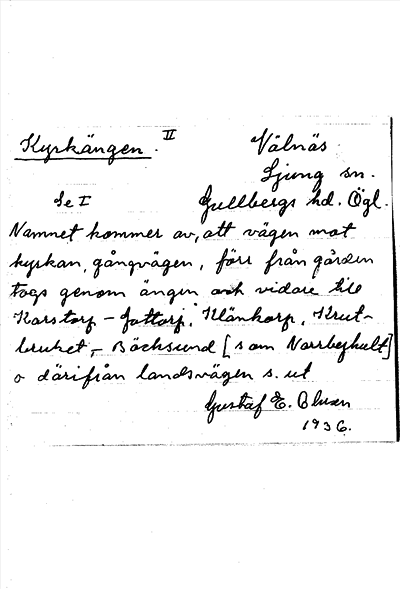 Kyrkängen. II
Välnäs
Ljung sn.
Se I
Gullbergs hd. Ögl.
Namnet kommer av, att vägen mot
kyrkan, gångvägen, förr från gården
togs genom ängen och vidare till
Karstorp - Jattorp, Klänkorp, Krut-
bruket, - Bäcksund [som Narrbehult]
o därifrån landsvägen s. ut
Gustaf E. Olsson
1936.